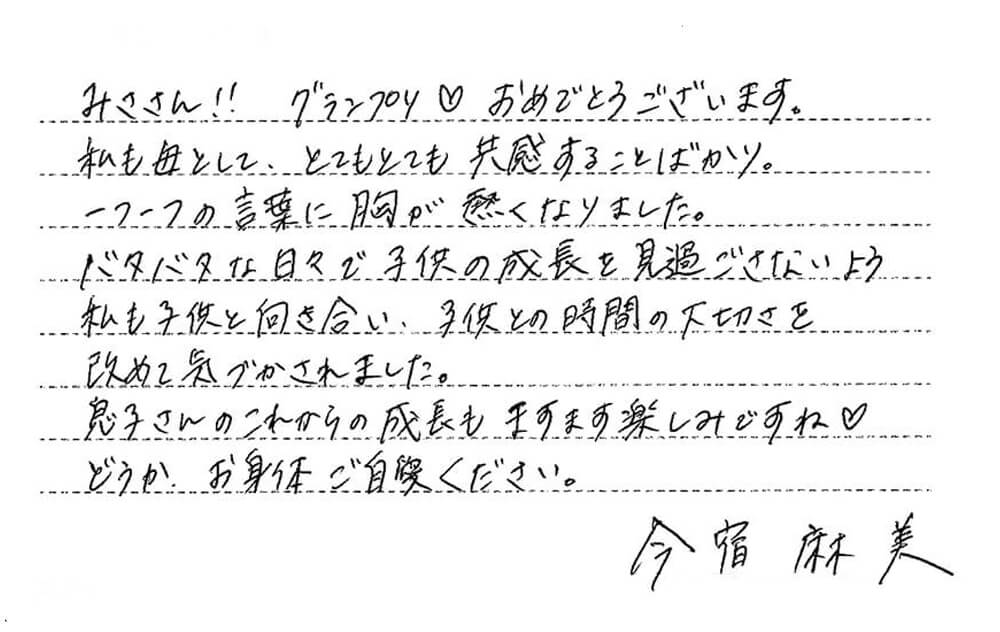 みささん!! グランプリ♡ おめでとうございます。
私も母として、とてもとても 共感することばかり。
一つ一つの言葉に胸が 熱くなりました。
バタバタな日々で子供の成長を見過ごさないよう
私も子供と向き合い、子供との時間の大切さを
改めて気づかされました。
息子さんのこれからの成長も ますます楽しみですね♡
どうか、お身体ご自愛ください。
今宿 麻美